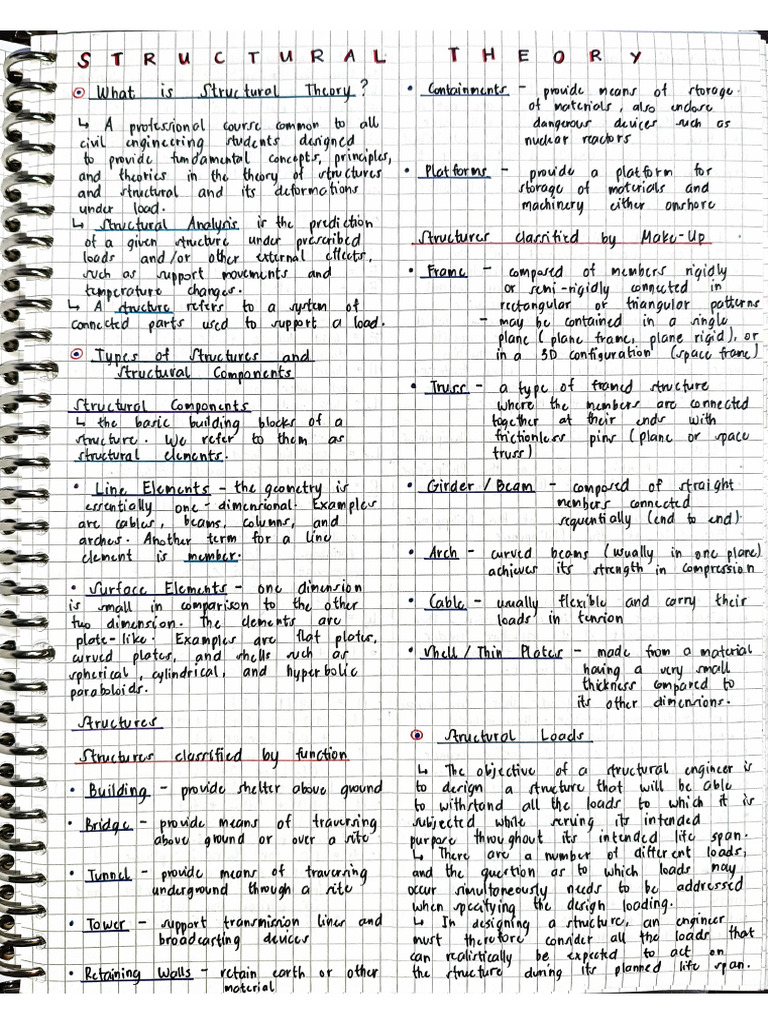 STRUCTURAL THEORY
What is Structural Theory?
↳ A professional course common to all
civil engineering students designed
to provide fundamental concepts, principles,
and theories in the theory of structures
and structural and its deformations
under load.
↳ Structural Analysis is the prediction
of a given structure under prescribed
loads and/or other external effects,
such as support movements and
temperature changes.
↳ A structure refers to a system of
connected parts used to support a load.
Types of Structures and
Structural Components
Structural Components
↳ the basic building blocks of a
structure. We refer to them as
structural elements.
• Line Elements - the geometry is
essentially one-dimensional. Examples
are cables, beams, columns, and
arches. Another term for a line
element is member.
• Surface Elements - one dimension
is small in comparison to the other
two dimension. The elements are
plate-like. Examples are flat plates,
curved plates, and shells such as
spherical, cylindrical, and hyperbolic
paraboloids.
Structures
Structures classified by function
• Building - provide shelter above ground
• Bridge - provide means of traversing
above ground or over a site
• Tunnel - provide means of traversing
underground through a site
• Tower - support transmission lines and
broadcasting devices
• Retaining Walls - retain earth or other
material
• Containments - provide means of storage
of materials, also enclose
dangerous devices such as
nuclear reactors
• Platforms - provide a platform for
storage of materials and
machinery either onshore
Structures classified by Make-Up
• Frame - composed of members rigidly
or semi-rigidly connected in
rectangular or triangular patterns
- may be contained in a single
plane (plane frame, plane rigid), or
in a 3D configuration (space frame)
• Truss - a type of framed structure
where the members are connected
together at their ends with
frictionless pins (plane or space
truss)
• Girder / Beam - composed of straight
members connected
sequentially (end to end).
• Arch - curved beams (usually in one plane)
achieves its strength in compression
• Cable - usually flexible and carry their
loads in tension
• Shell / Thin Plates - made from a material
having a very small
thickness compared to
its other dimensions.
Structural Loads
↳ The objective of a structural engineer is
to design a structure that will be able
to withstand all the loads to which it is
subjected while serving its intended
purpose throughout its intended life span.
↳ There are a number of different loads,
and the question as to which loads may
occur simultaneously needs to be addressed
when specifying the design loading.
↳ In designing a structure, an engineer
must therefore consider all the loads that
can realistically be expected to act on
the structure during its planned life span.